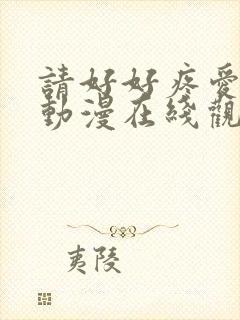 請好好疼愛
動漫在綫觀
夷陵